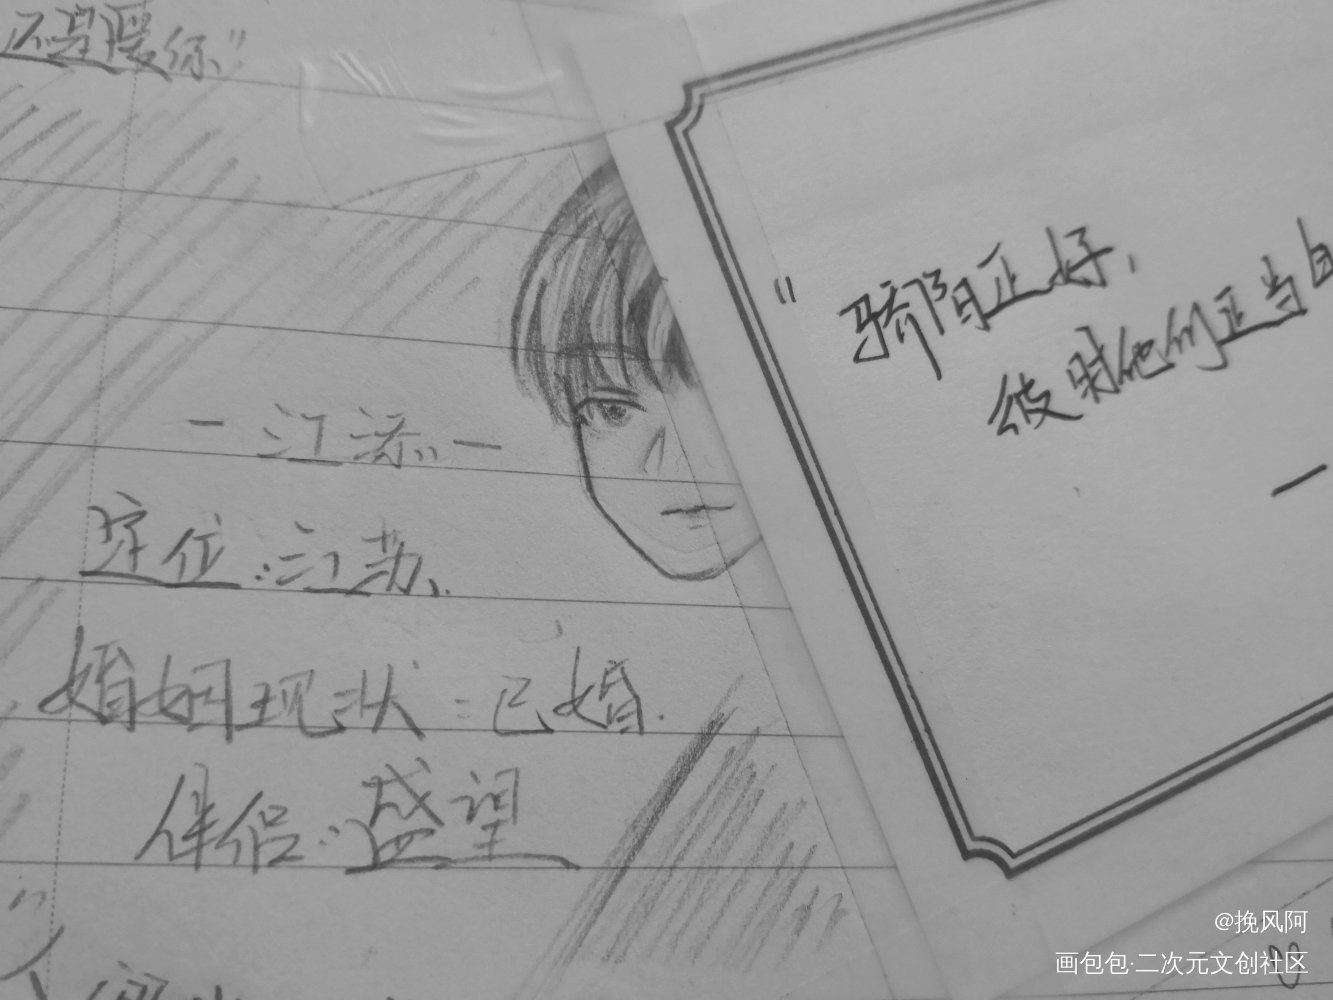 还是暖你"
一江添一
定位:江苏.
婚姻现状:已婚.
伴侣:盛望
"骄阳正好,
彼时他们正当
@挽风阿
画包包·二次元文创社区